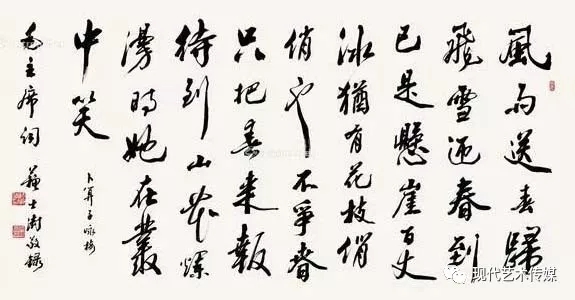 風雨送春歸
飛雪迎春到
已是懸崖百丈
冰猶有花枝俏
俏也不爭春
只把春来報
待到山花爛
漫時她在叢
中笑
卜算子咏梅
毛主席詞 蘇士澍敬録
现代艺术传媒